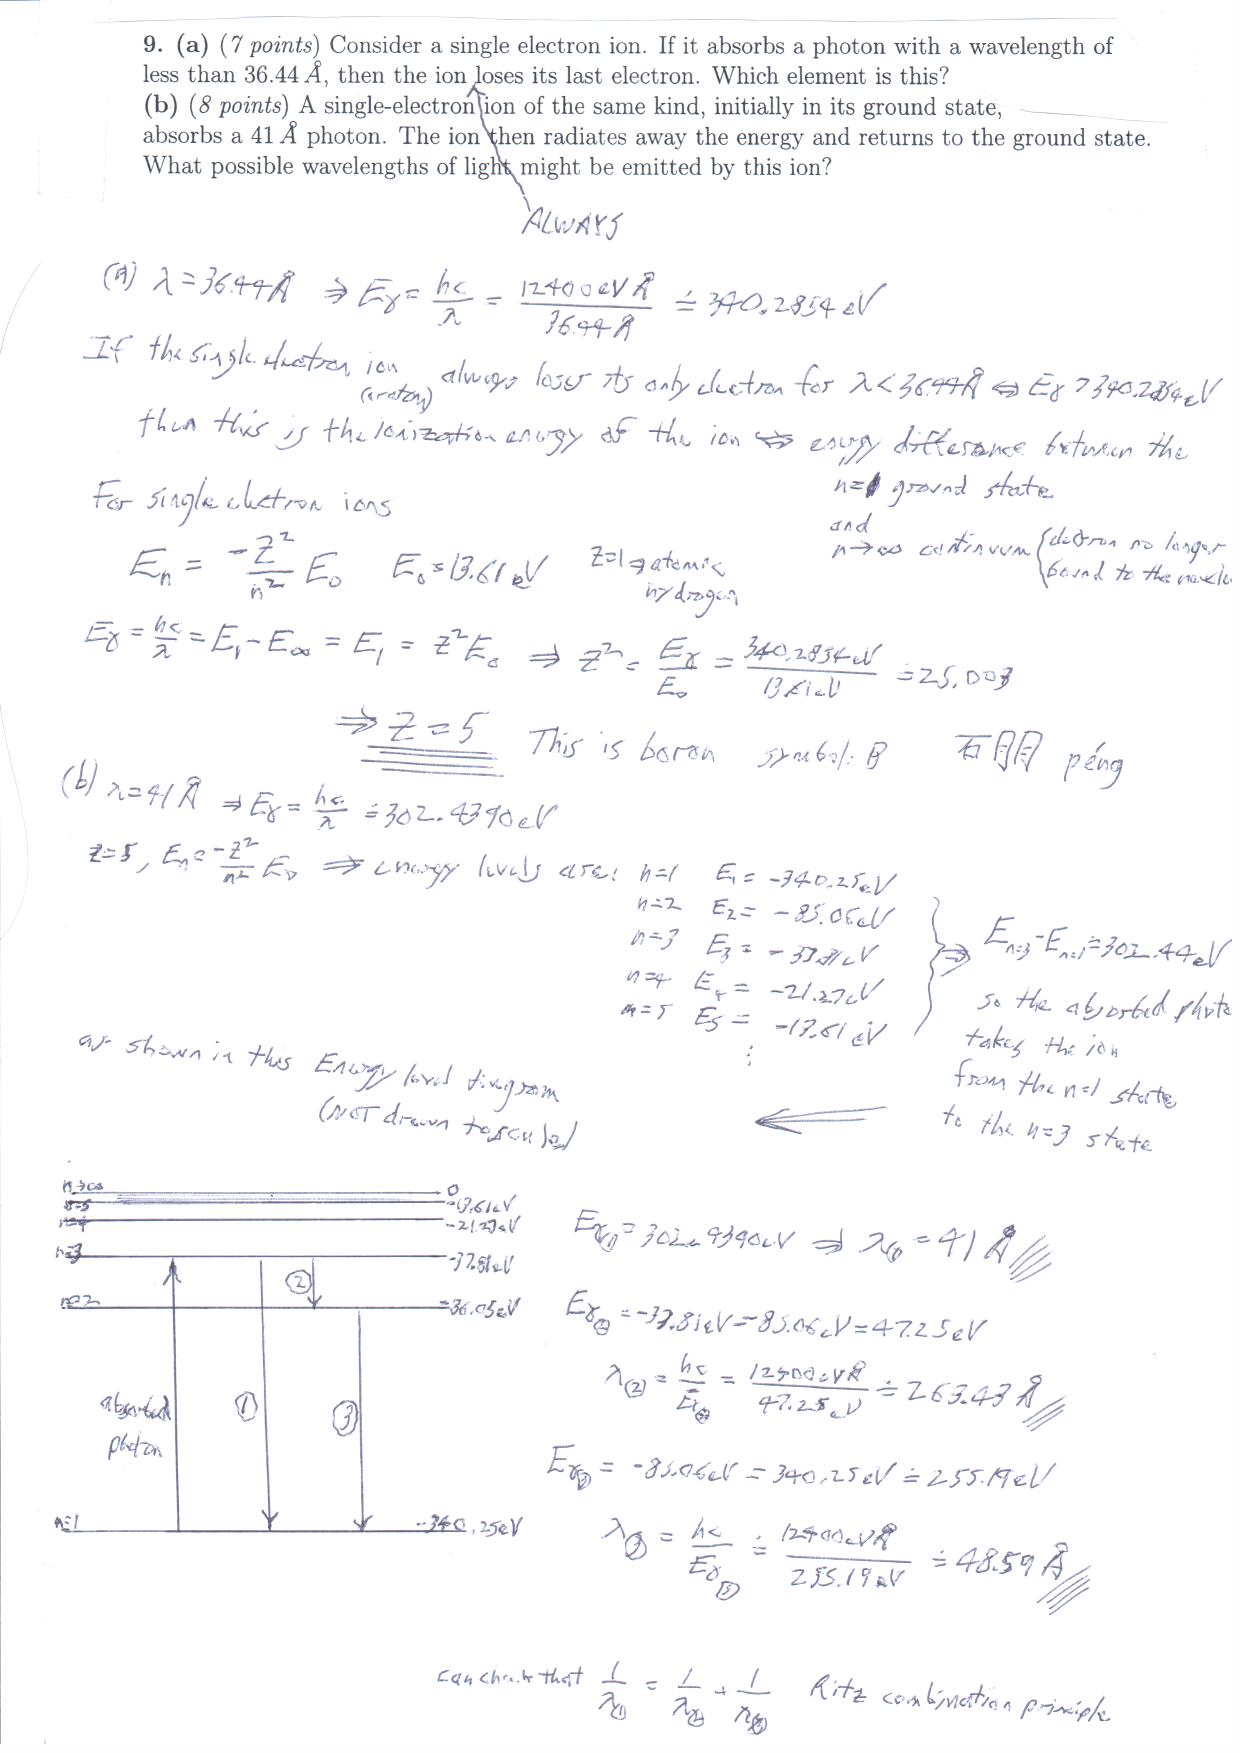 9. (a) (7 points) Consider a single electron ion. If it absorbs a photon with a wavelength of
less than 36.44 Å, then the ion loses its last electron. Which element is this?
(b) (8 points) A single-electron ion of the same kind, initially in its ground state,
absorbs a 41 Å photon. The ion then radiates away the energy and returns to the ground state.
What possible wavelengths of light might be emitted by this ion?
ALWAYS
(a) λ=36.44Å ⇒ Eγ = hc/λ = 12400eVÅ/36.44Å ≐ 340.2854 eV
If the single electron ion (or atom) always loses its only electron for λ<36.44Å ⇔ Eγ > 340.2854eV
then this is the ionization energy of the ion ⇔ energy difference between the
n=1 ground state
and
n→∞ continuum (electron no longer
bound to the
For single electron ions
En = -Z²/n² E₀ E₀=13.61eV Z=1⇒atomic
hydrogen
Eγ = hc/λ = E₁-E∞ = E₁ = Z²E₀ ⇒ Z² = Eγ/E₀ = 340.2834eV/13.61eV ≐ 25.003
⇒ Z=5 This is boron symbol: B 硼 péng
(b) λ=41Å ⇒ Eγ = hc/λ ≐ 302.4390eV
Z=5, En = -Z²/n² E₀ ⇒ energy levels are: n=1 E₁ = -340.25eV
n=2 E₂ = -85.06eV
n=3 E₃ = -37.81eV
n=4 E₄ = -21.27eV
n=5 E₅ = -13.61eV
⋮
⇒ En=3 - En=1 ≐ 302.44eV
so the absorbed
takes the ion
from the n=1 state
to the n=3 state
as shown in this Energy level diagram
(NOT drawn to scale)
n→∞ 0
n=5 -13.61eV
n=4 -21.27eV
n=3 -37.81eV
n=2 -36.05eV
n=1 -340.25eV
absorbed
photon
① ② ③
Eγ① = 302.4390eV ⇒ λ① = 41Å
Eγ② = -37.81eV - -85.06eV = 47.25eV
λ② = hc/Eγ② = 12400eVÅ/47.25eV ≐ 263.43Å
Eγ③ = -85.06eV - -340.25eV ≐ 255.19eV
λ③ = hc/Eγ③ ≐ 12400eVÅ/255.19eV ≐ 48.59Å
can check that 1/λ① = 1/λ② + 1/λ③ Ritz combination principle